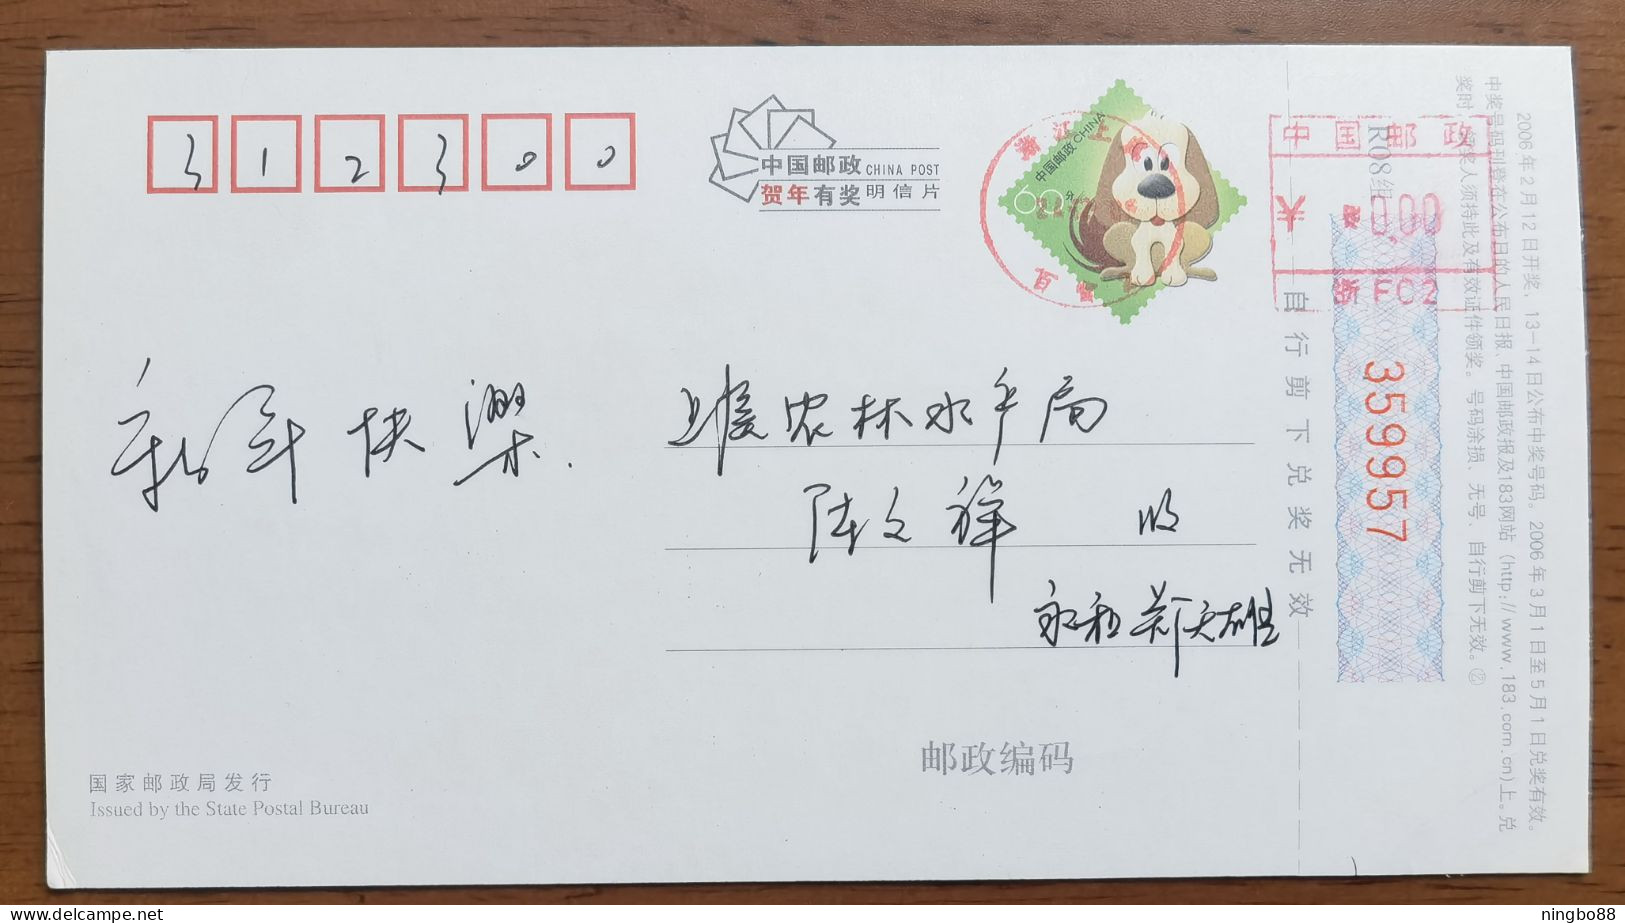 312300
中国邮政 CHINA POST
贺年有奖 明信片
中国邮政 CHINA
60分
浙江上虞
百官
中国邮政
0.00
浙 FC2
新年快樂.
上虞农林水产局
陆文祥 收
永和 郑天雄
邮政编码
国家邮政局发行
Issued by the State Postal Bureau
自行剪下兑奖无效
R08组
359957
2006年2月12日开奖，13-14日公布中奖号码。2006年3月1日至5月1日兑奖有效。
中奖号码刊登在公布日的人民日报、中国邮政报及183网站（http://www.183.com.cn)上。兑
奖时，领奖人须持此及有效证件领奖。号码涂损、无号、自行剪下无效。
ningbo88